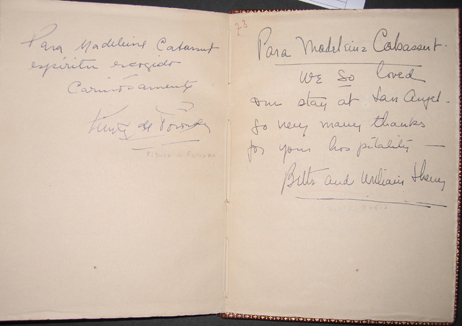 Para Madeleine Cabassut
espíritu escogido
Cariñosamente
73
Para Madeleine Cabassut.
We So loved
our stay at San Angel.
So very many thanks
for your hospitality —
and William